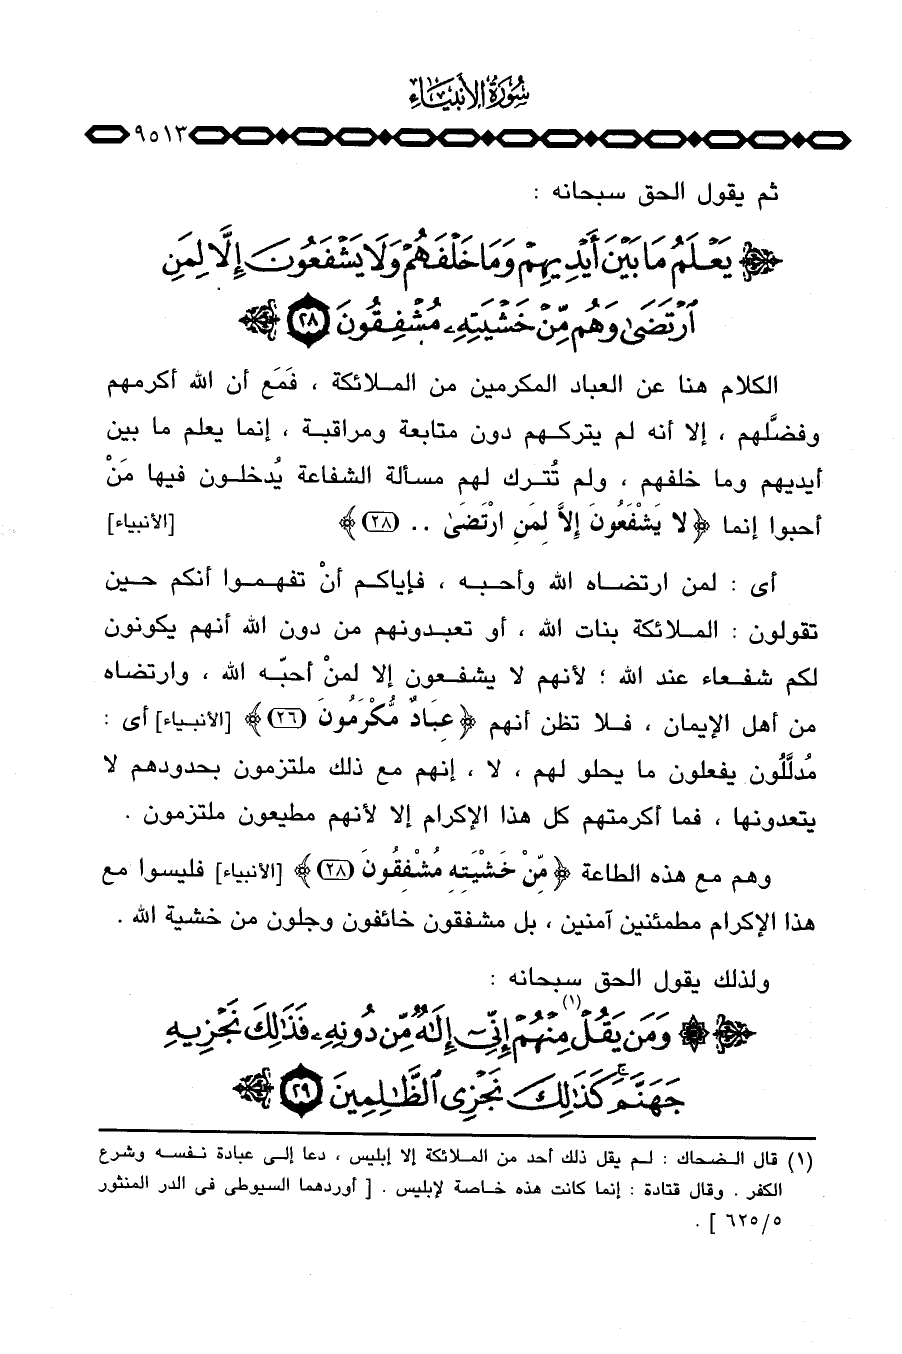 سُورَةُ الأَنبِيَاءِ
٩٥١٣
ثم يقول الحق سبحانه :
يَعْلَمُ مَا بَيْنَ أَيْدِيهِمْ وَمَا خَلْفَهُمْ وَلَا يَشْفَعُونَ إِلَّا لِمَنِ
ٱرْتَضَىٰ وَهُم مِّنْ خَشْيَتِهِۦ مُشْفِقُونَ ٢٨
الكلام هنا عن العباد المكرمين من الملائكة ، فَمَع أن الله أكرمهم
وفضَّلهم ، إلا أنه لم يتركهم دون متابعة ومراقبة ، إنما يعلم ما بين
أيديهم وما خلفهم ، ولم تُترك لهم مسألة الشفاعة يُدخلون فيها مَنْ
أحبوا إنما ﴿ لا يَشْفَعُونَ إِلاَّ لِمَنِ ارْتَضَىٰ .. (٢٨) ﴾ [الأنبياء]
أى : لمن ارتضاه الله وأحبه ، فإياكم أنْ تفهموا أنكم حين
تقولون : الملائكة بنات الله ، أو تعبدونهم من دون الله أنهم يكونون
لكم شفعاء عند الله ؛ لأنهم لا يشفعون إلا لمنْ أحبّه الله ، وارتضاه
من أهل الإيمان ، فلا تظن أنهم ﴿ عِبَادٌ مُّكْرَمُونَ (٢٦) ﴾ [الأنبياء] أى :
مُدلَّلُون يفعلون ما يحلو لهم ، لا ، إنهم مع ذلك ملتزمون بحدودهم لا
يتعدونها ، فما أكرمتهم كل هذا الإكرام إلا لأنهم مطيعون ملتزمون .
وهم مع هذه الطاعة ﴿ مِّنْ خَشْيَتِهِ مُشْفِقُونَ (٢٨) ﴾ [الأنبياء] فليسوا مع
هذا الإكرام مطمئنين آمنين ، بل مشفقون خائفون وجلون من خشية الله .
ولذلك يقول الحق سبحانه :
وَمَن يَقُلْ مِنْهُمْ(١) إِنِّىٓ إِلَٰهٌ مِّن دُونِهِۦ فَذَٰلِكَ نَجْزِيهِ
جَهَنَّمَ ۚ كَذَٰلِكَ نَجْزِى ٱلظَّٰلِمِينَ ٢٩
(١) قال الضحاك : لم يقل ذلك أحد من الملائكة إلا إبليس ، دعا إلى عبادة نفسه وشرع
الكفر . وقال قتادة : إنما كانت هذه خاصة لإبليس . [ أوردهما السيوطى فى الدر المنثور
٦٢٥/٥ ] .